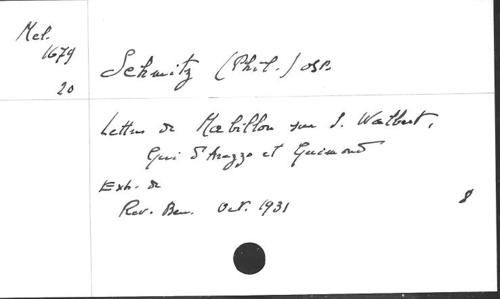 Mel.
1679
20
Schmitz (Phil.) osb.
Lettres de Mabillon sur S. Walbert,
Gui d'Arezzo et Guimond
Extr. de
Rev. Ben. Oct. 1931
8